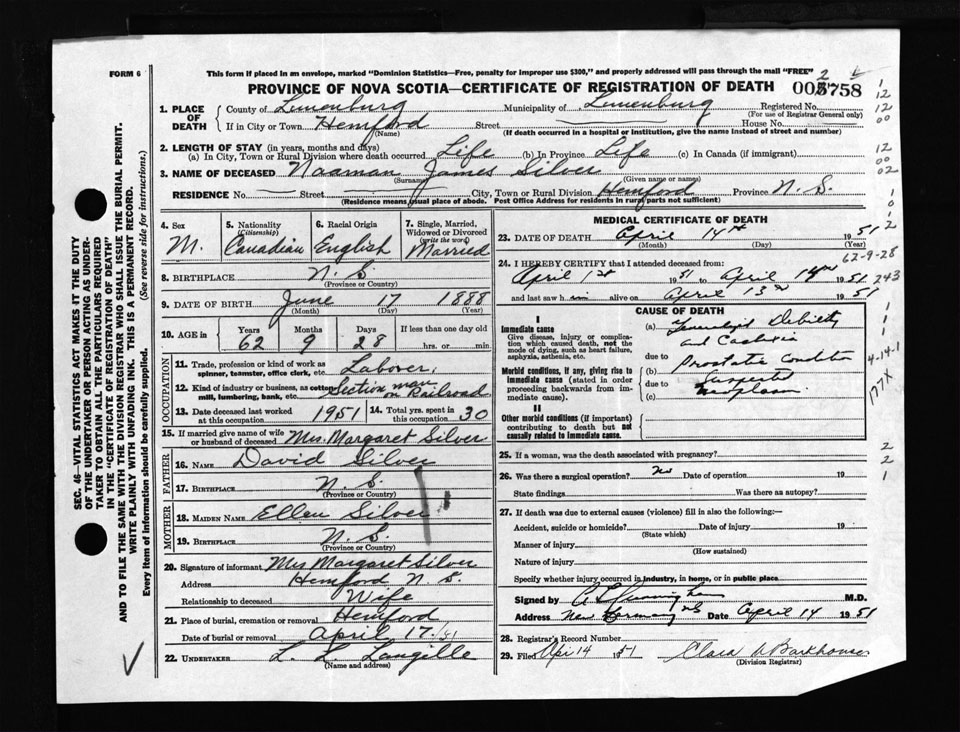 FORM 6
This form if placed in an envelope, marked "Dominion Statistics—Free, penalty for improper use $300," and properly addressed will pass through the mail "FREE"
PROVINCE OF NOVA SCOTIA—CERTIFICATE OF REGISTRATION OF DEATH 
1. PLACE OF DEATH
County of Lunenburg Municipality of Lunenburg Registered No.
(For use of Registrar General only)
If in City or Town Hemford Street House No.
(Name) (If death occurred in a hospital or institution, give the name instead of street and number)
2. LENGTH OF STAY (in years, months and days)
(a) In City, Town or Rural Division where death occurred Life (b) In Province Life (c) In Canada (if immigrant)
3. NAME OF DECEASED Naaman James Silver
(Surname) (Given name or names)
RESIDENCE No. Street City, Town or Rural Division Hemford Province N. S.
(Residence means usual place of abode. Post Office Address for residents in rural parts not sufficient)
4. Sex M.
5. Nationality (Citizenship) Canadian
6. Racial Origin English
7. Single, Married, Widowed or Divorced (write the word) Married
8. BIRTHPLACE N. S.
(Province or Country)
9. DATE OF BIRTH June 17 1888
(Month) (Day) (Year)
10. AGE in Years Months Days If less than one day old
62 9 28 hrs. or min.
OCCUPATION
11. Trade, profession or kind of work as spinner, teamster, office clerk, etc. Laborer,
12. Kind of industry or business, as cotton mill, lumbering, bank, etc. Section man on Railroad
13. Date deceased last worked at this occupation 1951
14. Total yrs. spent in this occupation 30
15. If married give name of wife or husband of deceased Mrs. Margaret Silver
FATHER
16. NAME David Silver
17. BIRTHPLACE N. S.
(Province or Country)
MOTHER
18. MAIDEN NAME Ellen Silver
19. BIRTHPLACE N. S.
(Province or Country)
20. Signature of informant Mrs Margaret Silver
Address Hemford N. S.
Relationship to deceased Wife
21. Place of burial, cremation or removal Hemford
Date of burial or removal April 17. /51
22. UNDERTAKER L. L. Langille
(Name and address)
MEDICAL CERTIFICATE OF DEATH
23. DATE OF DEATH April 14th 1951
(Month) (Day) (Year)
62-9-28
24. I HEREBY CERTIFY that I attended deceased from:
April 1st 1951 to April 14th 1951
243
and last saw him alive on April 13 1951
CAUSE OF DEATH
I
Immediate cause
Give disease, injury or complication which caused death, not the mode of dying, such as heart failure, asphyxia, asthenia, etc.
(a) Debility
and Cachexia
due to
Morbid conditions, if any, giving rise to immediate cause (stated in order proceeding backwards from immediate cause).
(b) Prostatic Condition
due to Suspected
(c) neoplasm
II
Other morbid conditions (if important) contributing to death but not causally related to immediate cause.
4-14-1
177X
25. If a woman, was the death associated with pregnancy?
26. Was there a surgical operation? No Date of operation 19
State findings Was there an autopsy?
27. If death was due to external causes (violence) fill in also the following:—
Accident, suicide or homicide? Date of injury 19
(State which)
Manner of injury
(How sustained)
Nature of injury
Specify whether injury occurred in industry, in home, or in public place
Signed by M.D.
Address New Germany NS Date April 14 1951
28. Registrar's Record Number
29. Filed Apr 14 1951 Clara Barkhouse
(Division Registrar)
SEC. 46—VITAL STATISTICS ACT MAKES IT THE DUTY
OF THE UNDERTAKER OR PERSON ACTING AS UNDER-
TAKER TO OBTAIN ALL THE PARTICULARS REQUIRED
IN THE "CERTIFICATE OF REGISTRATION OF DEATH"
AND TO FILE THE SAME WITH THE DIVISION REGISTRAR WHO SHALL ISSUE THE BURIAL PERMIT.
WRITE PLAINLY WITH UNFADING INK. THIS IS A PERMANENT RECORD.
Every item of information should be carefully supplied. (See reverse side for instructions.)